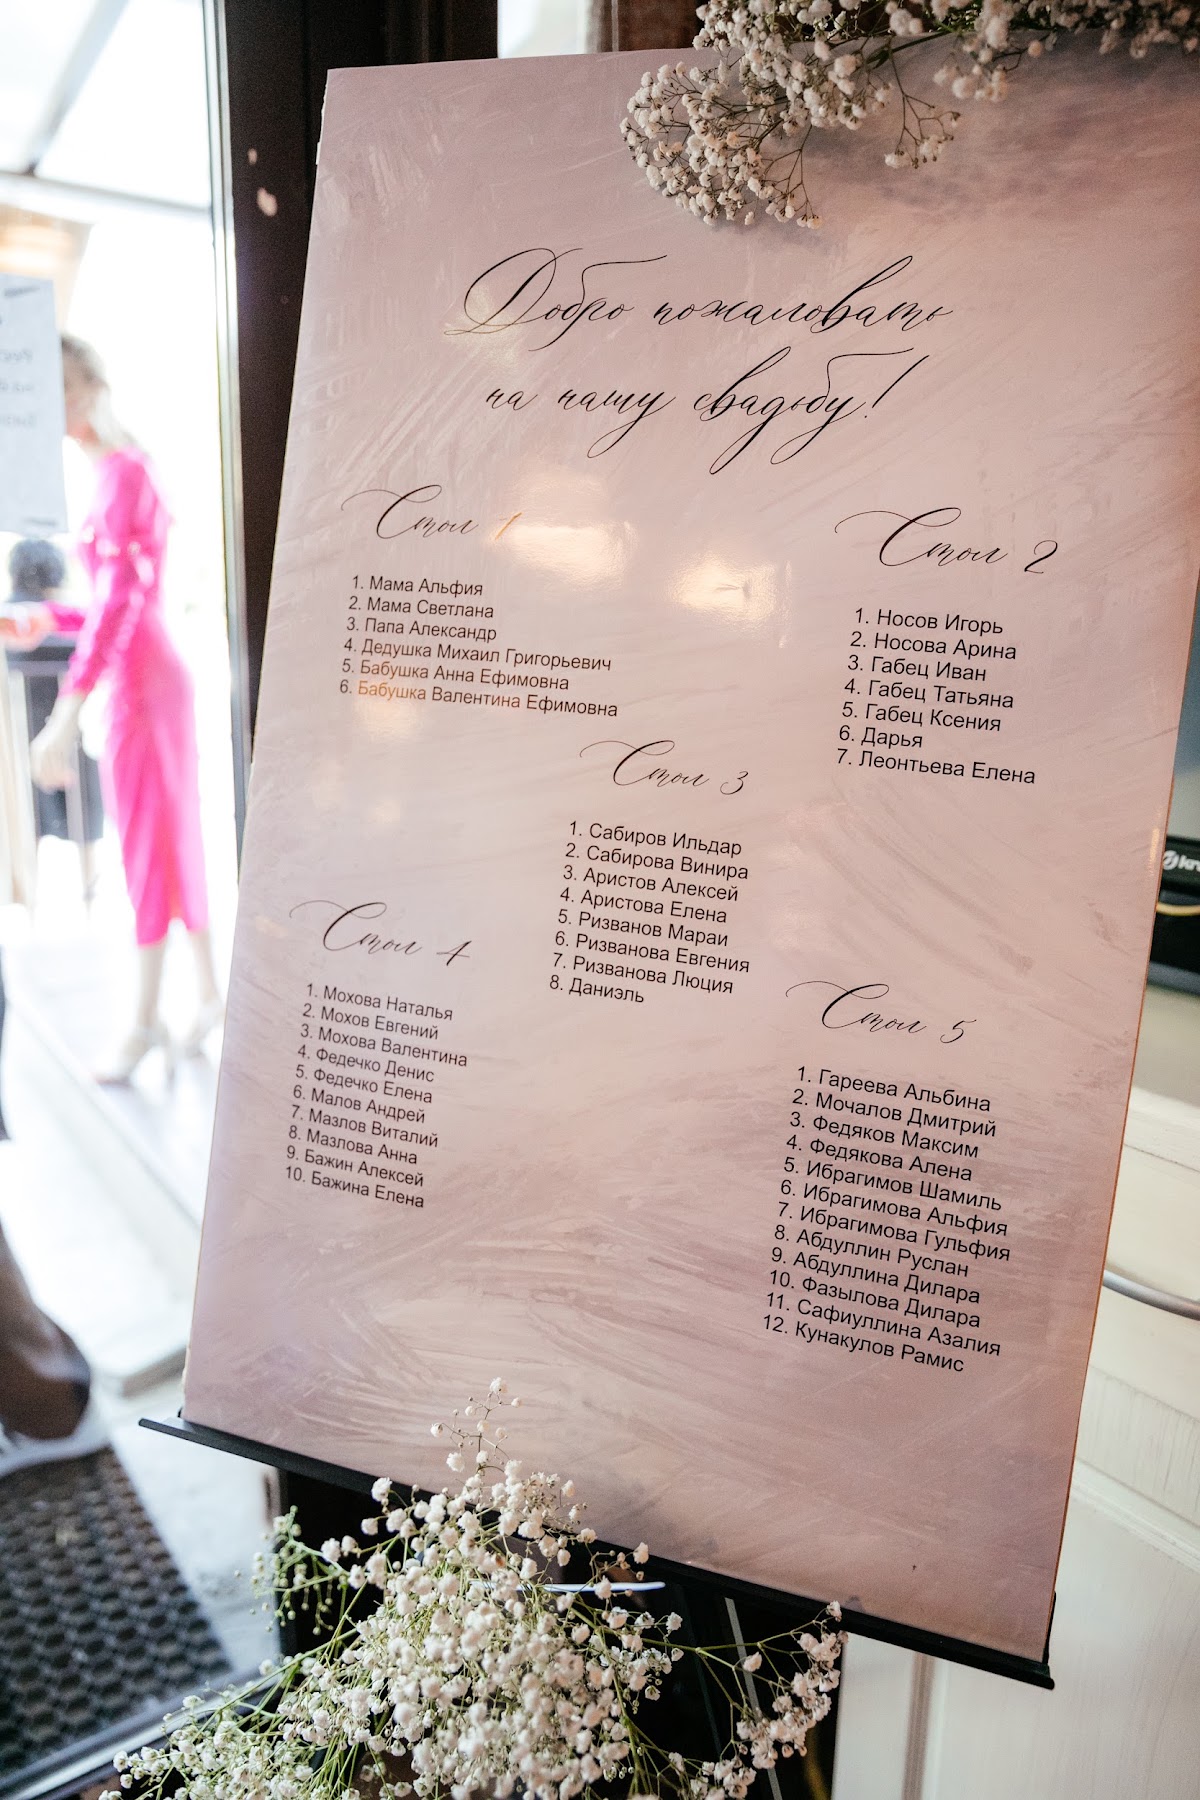 Добро пожаловать
на нашу свадьбу!
Стол 1
1. Мама Альфия
2. Мама Светлана
3. Папа Александр
4. Дедушка Михаил Григорьевич
5. Бабушка Анна Ефимовна
6. Бабушка Валентина Ефимовна
Стол 2
1. Носов Игорь
2. Носова Арина
3. Габец Иван
4. Габец Татьяна
5. Габец Ксения
6. Дарья
7. Леонтьева Елена
Стол 3
1. Сабиров Ильдар
2. Сабирова Винира
3. Аристов Алексей
4. Аристова Елена
5. Ризванов Мараи
6. Ризванова Евгения
7. Ризванова Люция
8. Даниэль
Стол 4
1. Мохова Наталья
2. Мохов Евгений
3. Мохова Валентина
4. Федечко Денис
5. Федечко Елена
6. Малов Андрей
7. Мазлов Виталий
8. Мазлова Анна
9. Бажин Алексей
10. Бажина Елена
Стол 5
1. Гареева Альбина
2. Мочалов Дмитрий
3. Федяков Максим
4. Федякова Алена
5. Ибрагимов Шамиль
6. Ибрагимова Альфия
7. Ибрагимова Гульфия
8. Абдуллин Руслан
9. Абдуллина Дилара
10. Фазылова Дилара
11. Сафиуллина Азалия
12. Кунакулов Рамис